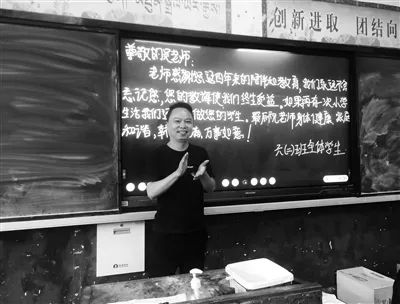 创新进取 团结向
尊敬的老师：
老师感谢您这四年来的陪伴和教育，我们永远不会
忘记您，您的教诲使我们终生受益，如果再有一次小学
生活我们还做您的学生。祝老师身体健康、家庭
和谐、万事如意！
六(二)班全体学生